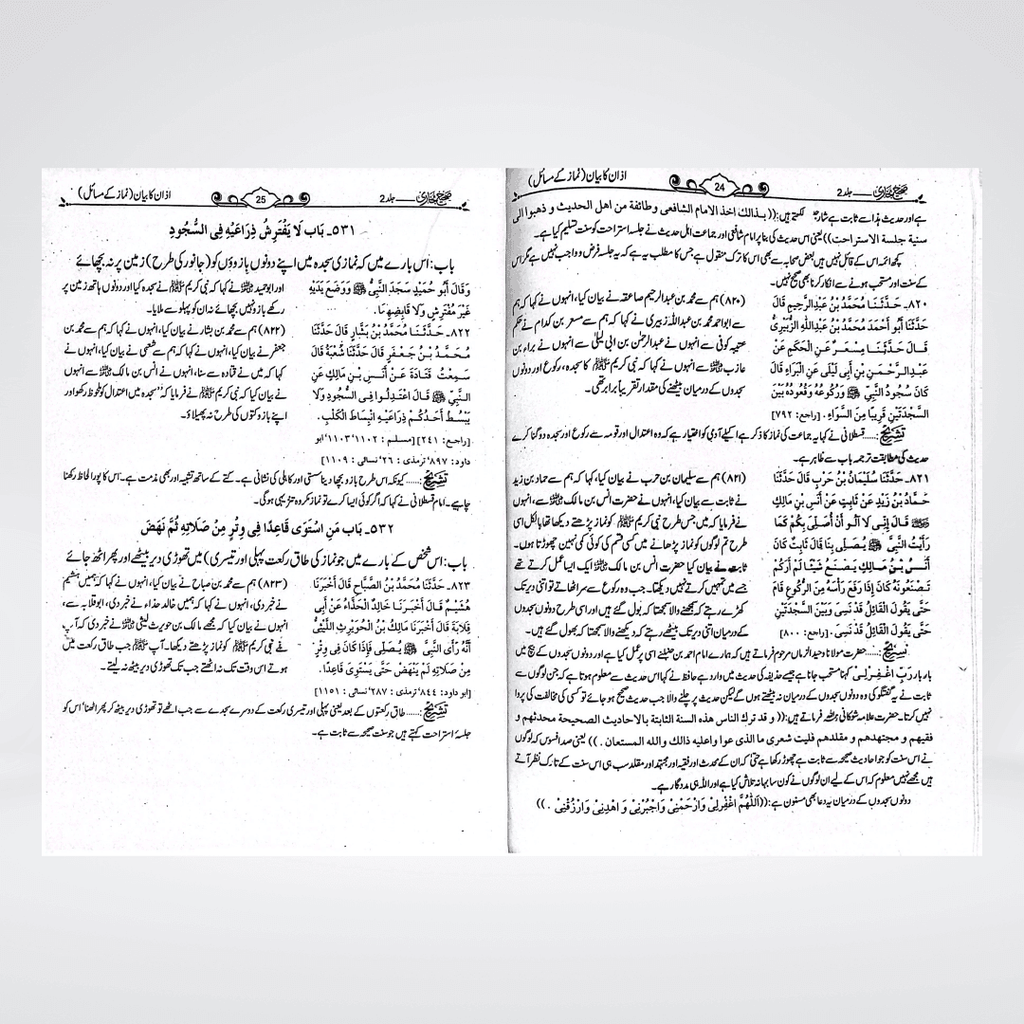 صحیح بخاری جلد 2
24
اذان کا بیان (نماز کے مسائل)
ہے اور حدیث ہذا سے ثابت ہے شارح لکھتے ہیں:((بذالك اخذ الامام الشافعى وطائفة من اهل الحديث و ذهبوا الى
سنية جلسة الاستراحت)) یعنی اس حدیث کی بنا پر امام شافعی اور جماعت اہل حدیث نے جلسہ استراحت کو سنت تسلیم کیا ہے۔
کچھ ائمہ اس کے قائل نہیں ہیں بعض صحابہ سے بھی اس کا ترک منقول ہے جس کا مطلب یہ ہے کہ یہ جلسہ فرض و واجب نہیں ہے مگر اس
کے سنت اور مستحب ہونے سے انکار کرنا بھی صحیح نہیں۔
٨٢٠۔ حَدَّثَنَا مُحَمَّدُ بْنُ عَبْدِالرَّحِيمِ قَالَ
حَدَّثَنَا أَبُو أَحْمَدَ مُحَمَّدُ بْنُ عَبْدِاللَّهِ الزُّبَيْرِيُّ
قَالَ حَدَّثَنَا مِسْعَرٌ عَنِ الْحَكَمِ عَنْ
عَبْدِالرَّحْمَنِ بْنِ أَبِي لَيْلَى عَنِ الْبَرَاءِ قَالَ
كَانَ سُجُودُ النَّبِيِّ ﷺ وَرُكُوعُهُ وَقُعُودُهُ بَيْنَ
السَّجْدَتَيْنِ قَرِيبًا مِنَ السَّوَاءِ . [راجع: ٧٩٢]
(۸۲۰) ہم سے محمد بن عبدالرحیم صاعقہ نے بیان کیا، انہوں نے کہا کہ ہم
سے ابو احمد محمد بن عبداللہ زبیری نے کہا کہ ہم سے مسعر بن کدام نے حکم
عتیبہ کوفی سے انہوں نے عبدالرحمٰن بن ابی لیلیٰ سے انہوں نے براء بن
عازب ؓ سے انہوں نے کہا کہ نبی کریم ﷺ کا سجدہ، رکوع اور دونوں
سجدوں کے درمیان بیٹھنے کی مقدار تقریباً برابر تھی۔
تشریح:..... قسطلانی نے کہا یہ جماعت کی نماز کا ذکر ہے اکیلے آدمی کو اختیار ہے کہ وہ اعتدال اور قومہ سے رکوع اور سجدہ دوگنا کرے
حدیث کی مطابقت ترجمہ باب سے ظاہر ہے۔
٨٢١۔ حَدَّثَنَا سُلَيْمَانُ بْنُ حَرْبٍ قَالَ حَدَّثَنَا
حَمَّادُ بْنُ زَيْدٍ عَنْ ثَابِتٍ عَنْ أَنَسِ بْنِ مَالِكٍ
ؓ قَالَ إِنِّي لَا آلُو أَنْ أُصَلِّيَ بِكُمْ كَمَا
رَأَيْتُ النَّبِيَّ ﷺ يُصَلِّي بِنَا قَالَ ثَابِتٌ كَانَ
أَنَسُ بْنُ مَالِكٍ يَصْنَعُ شَيْئًا لَمْ أَرَكُمْ
تَصْنَعُونَهُ كَانَ إِذَا رَفَعَ رَأْسَهُ مِنَ الرُّكُوعِ قَامَ
حَتَّى يَقُولَ الْقَائِلُ قَدْ نَسِيَ وَبَيْنَ السَّجْدَتَيْنِ
حَتَّى يَقُولَ الْقَائِلُ قَدْ نَسِيَ. [راجع: ٨٠٠]
(۸۲۱) ہم سے سلیمان بن حرب نے بیان کیا، انہوں نے کہا کہ ہم سے حماد بن زید
نے ثابت سے بیان کیا، انہوں نے حضرت انس بن مالک ؓ سے، انہوں
نے فرمایا کہ میں جس طرح نبی کریم ﷺ کو نماز پڑھتے دیکھا تھا بالکل اسی
طرح تم لوگوں کو نماز پڑھانے میں کسی قسم کی کوئی کمی نہیں چھوڑتا ہوں۔
ثابت نے بیان کیا حضرت انس بن مالک ؓ ایک ایسا عمل کرتے تھے
جسے میں تمہیں کرتے نہیں دیکھتا۔ جب وہ رکوع سے سر اٹھاتے تو اتنی دیر تک
کھڑے رہتے کہ سمجھنے والا سمجھتا کہ بھول گئے ہیں اور اسی طرح دونوں سجدوں
کے درمیان اتنی دیر تک بیٹھے رہتے کہ دیکھنے والا سمجھتا کہ بھول گئے ہیں۔
تشریح:..... حضرت مولانا وحید الزماں مرحوم فرماتے ہیں کہ ہمارے امام احمد بن حنبل نے اسی پر عمل کیا ہے اور دونوں سجدوں کے بیچ میں
بار بار رَبِّ اغْفِرْلِیْ کہنا مستحب جانا ہے جیسے حذیفہ کی حدیث میں وارد ہے حافظ نے کہا اس حدیث سے معلوم ہوتا ہے کہ جن لوگوں سے
ثابت نے یہ گفتگو کی وہ دونوں سجدوں کے درمیان نہ بیٹھتے ہوں گے لیکن حدیث پر چلنے والا جب حدیث صحیح ہو جائے تو کسی کی مخالفت کی پروا
نہیں کرتا۔ حضرت علامہ شوکانی فرماتے ہیں:(( و قد ترك الناس هذه السنة الثابتة بالاحاديث الصحيحة محدثهم و
فقيهم و مجتهدهم و مقلدهم فليت شعرى ما الذى عوا واعليه ذالك والله المستعان . )) یعنی صد افسوس کہ لوگوں
نے اس سنت کو جو احادیث صحیحہ سے ثابت ہے چھوڑ رکھا ہے حتیٰ کہ ان کے محدث اور فقیہ اور مجتہد اور مقلد سب ہی اس سنت کے تارک نظر آتے
ہیں مجھے نہیں معلوم کہ اس کے لیے ان لوگوں نے کون سا بہانہ تلاش کیا ہے اور اللہ ہی مددگار ہے۔
دونوں سجدوں کے درمیان یہ دعا بھی مسنون ہے:((اَللّٰهُمَّ اغْفِرْلِیْ وَارْحَمْنِیْ وَاجْبُرْنِیْ وَ اهْدِنِیْ وَارْزُقْنِیْ . ))
صحیح بخاری جلد 2
25
اذان کا بیان (نماز کے مسائل)
٥٣١۔ بَاب لَا يَفْتَرِشُ ذِرَاعَيْهِ فِي السُّجُودِ
باب: اس بارے میں کہ نمازی سجدہ میں اپنے دونوں بازوؤں کو (جانور کی طرح) زمین پر نہ بچھائے
وَقَالَ أَبُو حُمَيْدٍ سَجَدَ النَّبِيُّ ﷺ وَوَضَعَ يَدَيْهِ
غَيْرَ مُفْتَرِشٍ وَلَا قَابِضِهِمَا.
اور ابو حمید ؓ نے کہا کہ نبی کریم ﷺ نے سجدہ کیا اور دونوں ہاتھ زمین پر
رکھے بازو نہیں بچھائے نہ ان کو پہلو سے ملایا۔
٨٢٢۔ حَدَّثَنَا مُحَمَّدُ بْنُ بَشَّارٍ قَالَ حَدَّثَنَا
مُحَمَّدُ بْنُ جَعْفَرٍ قَالَ حَدَّثَنَا شُعْبَةُ قَالَ
سَمِعْتُ قَتَادَةَ عَنْ أَنَسِ بْنِ مَالِكٍ عَنِ
النَّبِيِّ ﷺ قَالَ اعْتَدِلُوا فِي السُّجُودِ وَلَا
يَبْسُطْ أَحَدُكُمْ ذِرَاعَيْهِ انْبِسَاطَ الْكَلْبِ.
[راجع: ٢٤١] [مسلم: ١١٠٢، ١١٠٣؛ ابو
داود: ٨٩٧؛ ترمذی: ٢٧٦؛ نسائی: ١١٠٩]
(۸۲۲) ہم سے محمد بن بشار نے بیان کیا، انہوں نے کہا کہ ہم سے محمد بن
جعفر نے بیان کیا، انہوں نے کہا کہ ہم سے شعبی نے بیان کیا، انہوں نے
کہا کہ میں نے قتادہ سے سنا، انہوں نے انس بن مالک ؓ سے انہوں
نے بیان کیا کہ نبی کریم ﷺ نے فرمایا کہ ”سجدہ میں اعتدال کو ملحوظ رکھو اور
اپنے بازو کتوں کی طرح نہ پھیلاؤ۔“
تشریح:..... کیونکہ اس طرح بازو بچھا دینا سستی اور کاہلی کی نشانی ہے۔ کتے کے ساتھ تشبیہ اور بھی مذمت ہے۔ اس کا پورا لحاظ رکھنا
چاہیے۔ امام قسطلانی نے کہا کہ اگر کوئی ایسا کرے تو نماز مکروہ تنزیہی ہوگی۔
٥٣٢۔ بَاب مَنِ اسْتَوَى قَاعِدًا فِي وِتْرٍ مِنْ صَلَاتِهِ ثُمَّ نَهَضَ
باب: اس شخص کے بارے میں جو نماز کی طاق رکعت (پہلی اور تیسری) میں تھوڑی دیر بیٹھے اور پھر اٹھ جائے
٨٢٣۔ حَدَّثَنَا مُحَمَّدُ بْنُ الصَّبَّاحِ قَالَ أَخْبَرَنَا
هُشَيْمٌ قَالَ أَخْبَرَنَا خَالِدٌ الْحَذَّاءُ عَنْ أَبِي
قِلَابَةَ قَالَ أَخْبَرَنَا مَالِكُ بْنُ الْحُوَيْرِثِ اللَّيْثِيُّ
أَنَّهُ رَأَى النَّبِيَّ ﷺ يُصَلِّي فَإِذَا كَانَ فِي وِتْرٍ
مِنْ صَلَاتِهِ لَمْ يَنْهَضْ حَتَّى يَسْتَوِيَ قَاعِدًا.
[ابو داود: ٨٤٤؛ ترمذی: ٢٨٧؛ نسائی: ١١٥١]
(۸۲۳) ہم سے محمد بن صباح نے بیان کیا، انہوں نے کہا کہ ہمیں ہشیم
نے خبر دی، انہوں نے کہا کہ ہمیں خالد حذاء نے خبر دی، ابوقلابہ سے،
انہوں نے بیان کیا کہ مجھے مالک بن حویرث لیثی ؓ نے خبر دی کہ آپ
نے نبی کریم ﷺ کو نماز پڑھتے دیکھا۔ آپ ﷺ جب طاق رکعت میں
ہوتے اس وقت تک نہ اٹھتے جب تک تھوڑی دیر بیٹھ نہ لیتے۔
تشریح:..... طاق رکعتوں کے بعد یعنی پہلی اور تیسری رکعت کے دوسرے سجدے سے جب اٹھے تو تھوڑی دیر بیٹھ کر پھر اٹھنا اس کو
جلسۂ استراحت کہتے ہیں جو سنت صحیحہ سے ثابت ہے۔